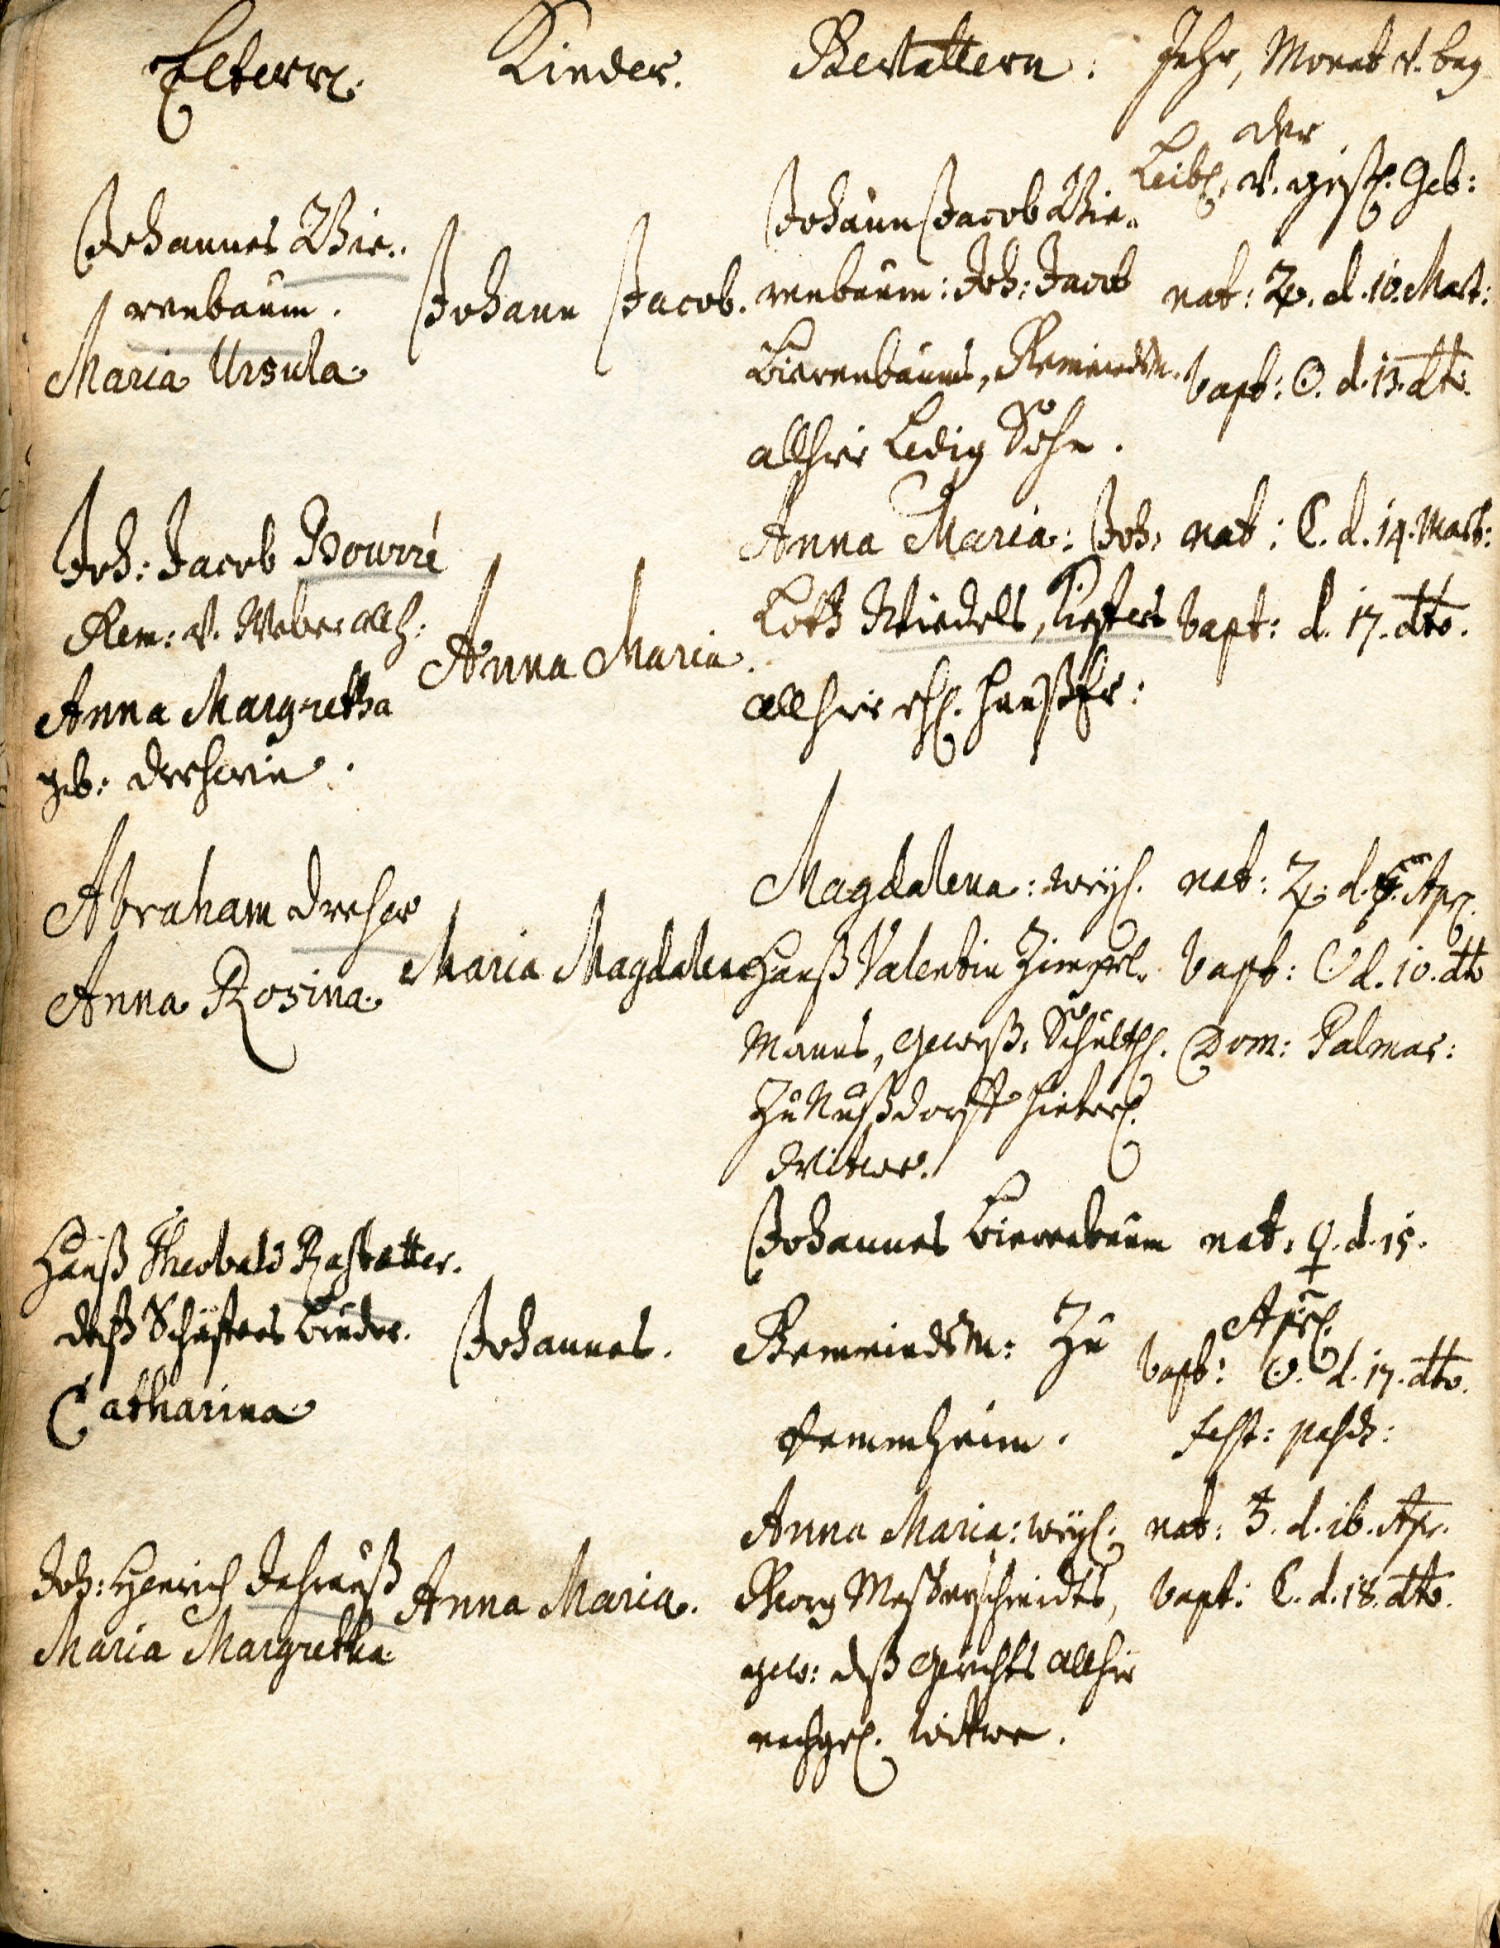 Eltern. Kinder. Gevattern: Jahr, Monat u. tag
der
Leibl. u. geistl. Geb:
Johannes Bie-
renbaum.
Maria Ursula.
Johann Jacob.
Johann Jacob Bie-
renbaum: Joh: Jacob
Bierenbaums, Gemeindsm.
allhier Ledig Sohn.
nat: ♃. d. 10. Mart:
bapt: ☉. d. 13. dto.
Joh: Jacob Bourré
Gem: u. Weber allh:
Anna Margretha
geb: Dreherin.
Anna Maria.
Anna Maria: Joh:
Lotz Riedels, Kiefers
allhier ehl. Haußfr:
nat: ☾. d. 14. Mart:
bapt: d. 17. dto.
Abraham Dreher
Anna Rosina.
Maria Magdalena
Magdalena: weyl.
Hanß Valentin Zimper-
manns, gewesß. Schulth.
zu Nußdorff hinterl.
Witwe.
nat: ♃. d. 7. Apr.
bapt: ☉ d. 10. dto
Dom: Palmar:
Hanß Theobald Rastetter.
deß Schäffers bruder.
Catharina
Johannes.
Johannes Bierenbaum
Gemeindsm: zu
Dammheim.
nat: ♀. d. 15.
Apr.
bapt: ☉. d. 17. dto.
fest: pasch:
Joh: Henrich Dehrauß
Maria Margretha
Anna Maria.
Anna Maria: weyl.
Georg Messerschmidts,
gew: deß Gerichts allhier
nachgel. Wittwe.
nat: ♄. d. 16. Apr.
bapt: ☾. d. 18. dto.